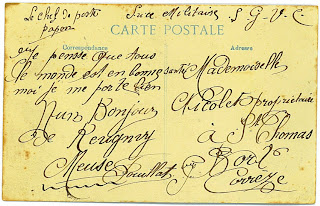 Le chef de poste Succ Militaire S G V C
papon
CARTE POSTALE
Correspondance
Adresse
Je pense que tous
le monde est en bonne santé
moi je me porte bien
Un Bonjour
de Revigny
Meuse
Mademoiselle
Chicolet propriétaire
à St Thomas
Bort
Correze